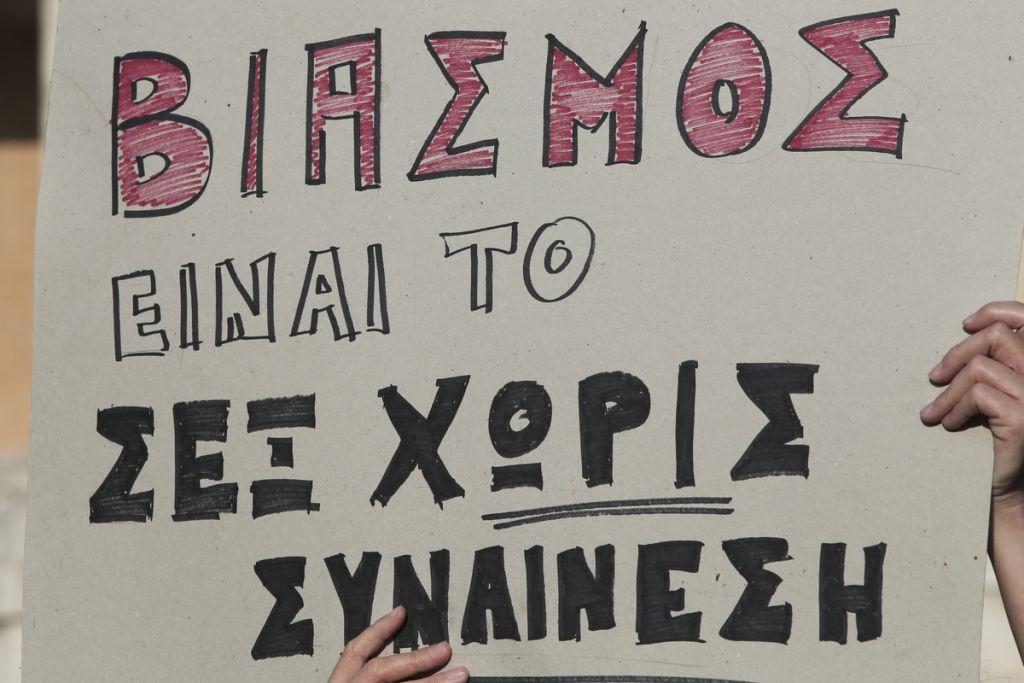 ΒΙΑΣΜΟΣ
ΕΙΝΑΙ ΤΟ
ΣΕΞ ΧΩΡΙΣ
ΣΥΝΑΙΝΕΣΗ